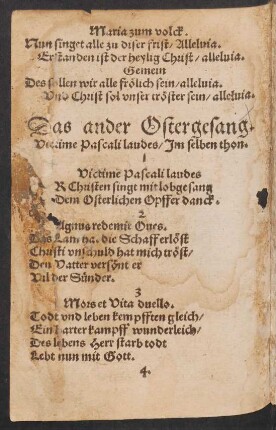 Maria zum volck.
Nun singet alle zu diser frist/ Alleluia.
Erstanden ist der heylig Christ/ alleluia.
Gemein
Des sollen wir alle frölich sein/alleluia.
Vnd Christ sol vnser tröster sein/ alleluia.
Das ander Ostergesang.
Victime Pascali laudes/ Im selben thon.
1
Victime Pascali laudes
R Christen singt mit lobgesang
Dem Osterlichen Opffer danck.
2
Agnus redemit Oues.
Das Lam die Schaff erlöst
Christi vnschuld hat mich tröst/
Den Vatter versönt er
Vil der Sünder.
3
Mors et Vita duello.
Todt vnd leben kempfften gleich/
Ein harter kampff wunderleich/
Des lebens Herr starb todt
Lebt nun mit Gott.
4.